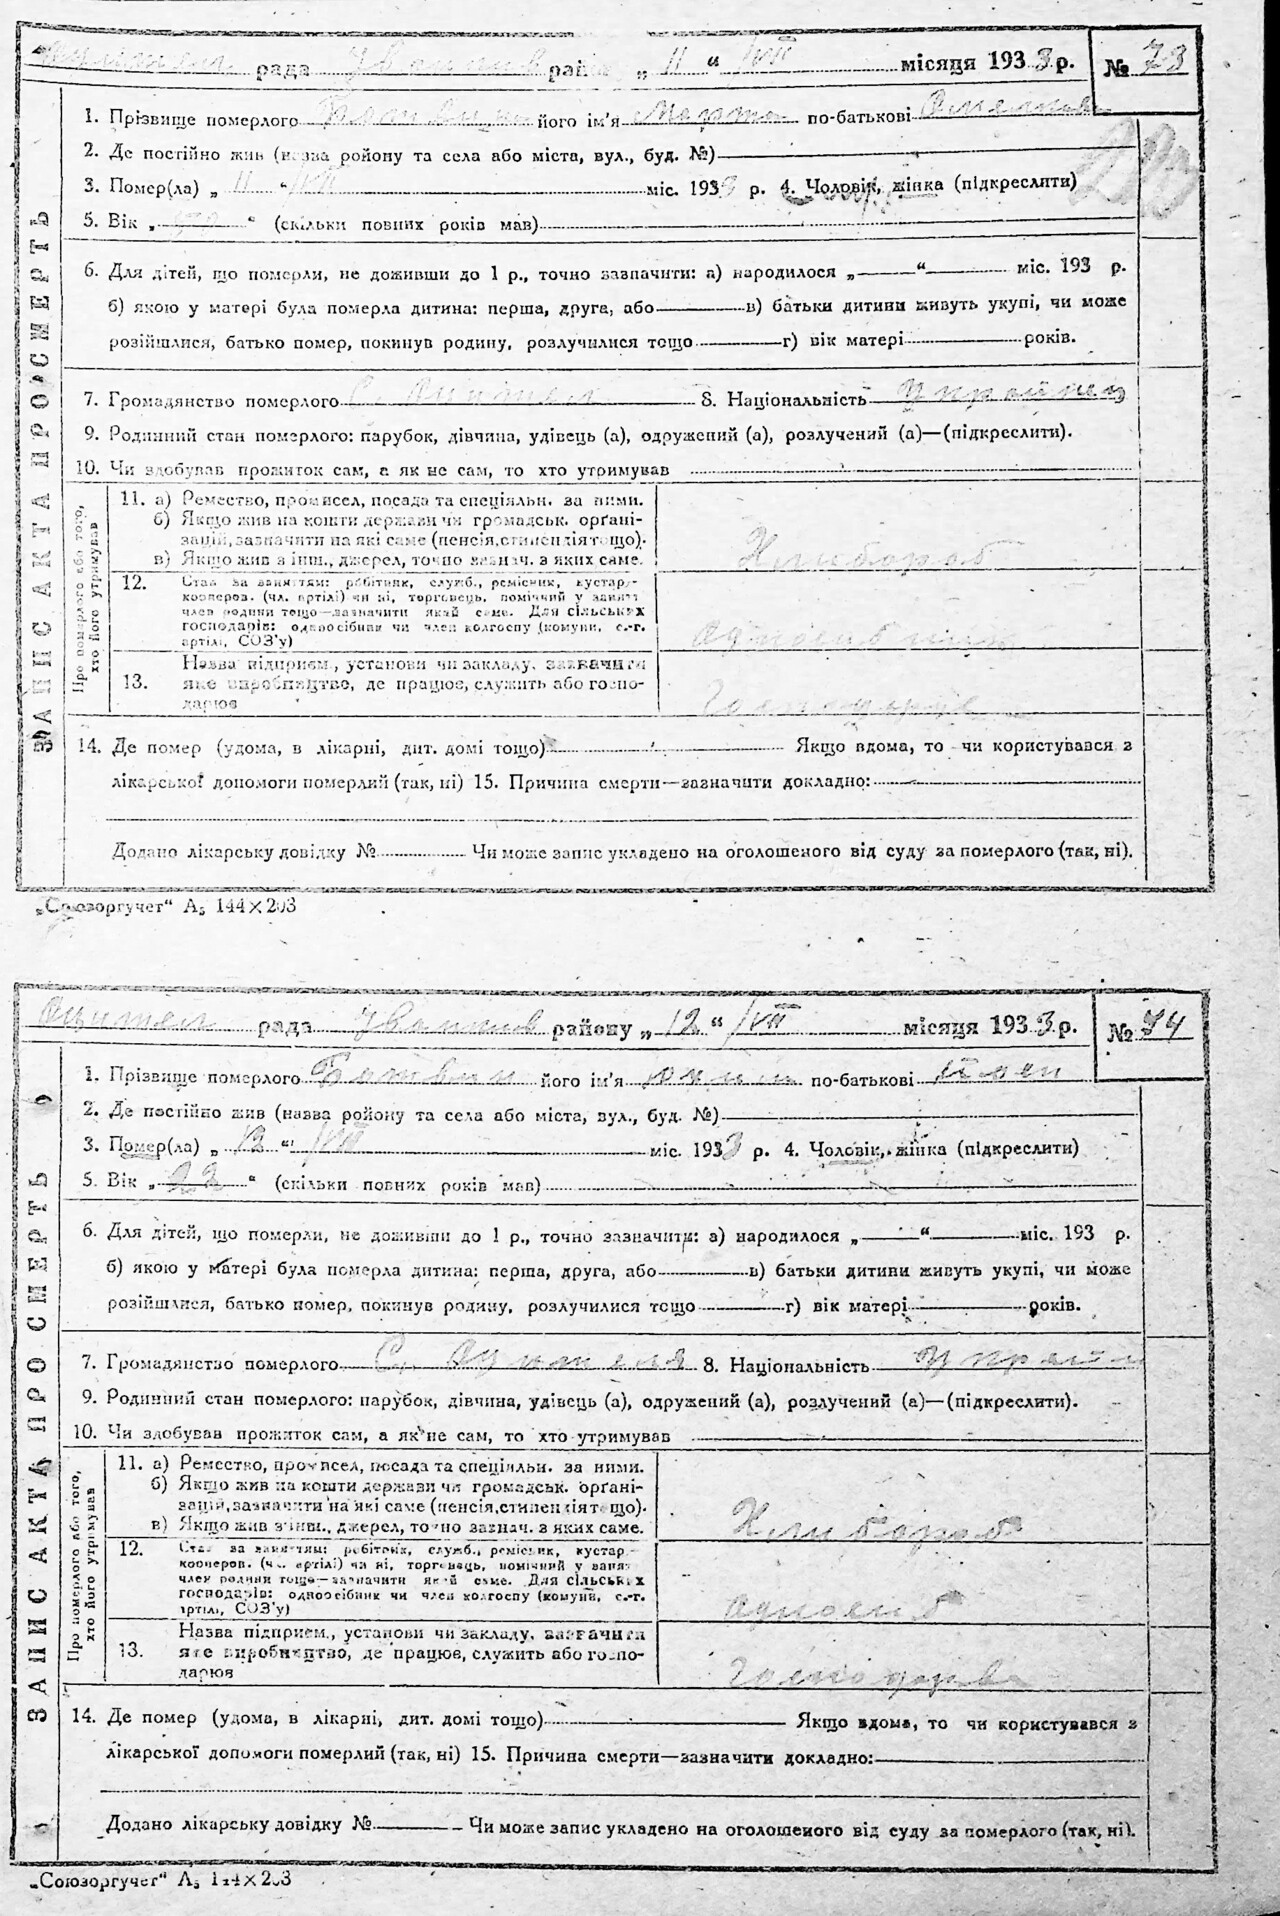 рада район „ 11 “ /VII місяця 1933 р. № 73
1. Прізвище померлого його ім'я по-батькові
2. Де постійно жив (назва району та села або міста, вул., буд. №)
3. Помер(ла) „ 11 “ /VII міс. 1933 р. 4. Чоловік, жінка (підкреслити)
5. Вік „ “ (скільки повних років мав)
6. Для дітей, що померли, не доживши до 1 р., точно зазначити: а) народилося „ “ міс. 193 р.
б) якою у матері була померла дитина: перша, друга, або в) батьки дитини живуть укупі, чи може
розійшлися, батько помер, покинув родину, розлучилися тощо г) вік матері років.
7. Громадянство померлого 8. Національність Украйнец
9. Родинний стан померлого: парубок, дівчина, удівець (а), одружений (а), розлучений (а)—(підкреслити).
10. Чи здобував прожиток сам, а як не сам, то хто утримував
ЗАПИС АКТА ПРО СМЕРТЬ
Про померлого або того, хто його утримував
11. а) Ремество, промисел, посада та спеціяльн. за ними.
б) Якщо жив на кошти держави чи громадськ. орґані-
зацій, зазначити на які саме (пенсія, стипендія тощо).
в) Якщо жив з інш., джерел, точно зазнач. з яких саме.
Хлибороб
12. Стан за заняттям: робітник, служб., ремісник, кустар-
кооперов. (чл. артілі) чи ні, торговець, помічний у занятт
член родини тощо—зазначити який саме. Для сільських
господарів: одноосібник чи член колгоспу (комуни, с.-г.
артілі, СОЗ'у)
13. Назва підприєм., установи чи закладу, зазначити
яке виробництво, де працює, служить або госпо-
дарює
14. Де помер (удома, в лікарні, дит. домі тощо) Якщо вдома, то чи користувався з
лікарської допомоги померлий (так, ні) 15. Причина смерти—зазначити докладно:
Додано лікарську довідку № Чи може запис укладено на оголошеного від суду за померлого (так, ні).
„Союзоргучет“ А5 144×203
рада району „ 12 “ /VII місяця 1933 р. № 74
1. Прізвище померлого Ботвин його ім'я по-батькові
2. Де постійно жив (назва району та села або міста, вул., буд. №)
3. Помер(ла) „ “ /VII міс. 1933 р. 4. Чоловік, жінка (підкреслити)
5. Вік „ 22 “ (скільки повних років мав)
6. Для дітей, що померли, не доживши до 1 р., точно зазначити: а) народилося „ “ міс. 193 р.
б) якою у матері була померла дитина: перша, друга, або в) батьки дитини живуть укупі, чи може
розійшлися, батько помер, покинув родину, розлучилися тощо г) вік матері років.
7. Громадянство померлого 8. Національність
9. Родинний стан померлого: парубок, дівчина, удівець (а), одружений (а), розлучений (а)—(підкреслити).
10. Чи здобував прожиток сам, а як не сам, то хто утримував
ЗАПИС АКТА ПРО СМЕРТЬ
Про померлого або того, хто його утримував
11. а) Ремество, промисел, посада та спеціяльн. за ними.
б) Якщо жив на кошти держави чи громадськ. орґані-
зацій, зазначити на які саме (пенсія, стипендія тощо).
в) Якщо жив з інш., джерел, точно зазнач. з яких саме.
Хлибороб
12. Стан за заняттям: робітник, служб., ремісник, кустар-
кооперов. (чл. артілі) чи ні, торговець, помічний у занят
член родини тощо—зазначити який саме. Для сільських
господарів: одноосібник чи член колгоспу (комуни, с.-г.
артілі, СОЗ'у)
Одноосиб
13. Назва підприєм., установи чи закладу, зазначити
яке виробництво, де працює, служить або госпо-
дарює
14. Де помер (удома, в лікарні, дит. домі тощо) Якщо вдома, то чи користувався з
лікарської допомоги померлий (так, ні) 15. Причина смерти—зазначити докладно:
Додано лікарську довідку № Чи може запис укладено на оголошеного від суду за померлого (так, ні).
„Союзоргучет“ А5 144×203